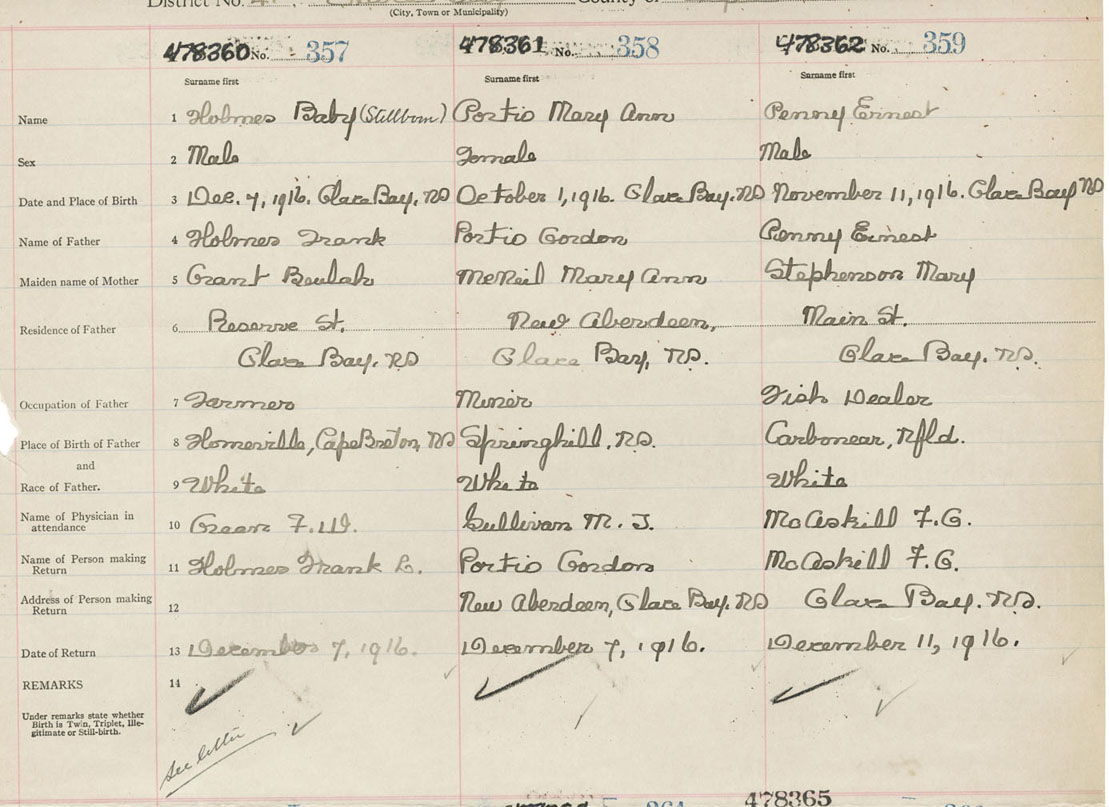 District No. County of
(City, Town or Municipality)
478360 No. 357 478361 No. 358 478362 No. 359
Surname first Surname first Surname first
Name 1 Holmes Baby (Stillborn) Portio Mary Ann Penny Ernest
Sex 2 Male Female Male
Date and Place of Birth 3 Dec. 7, 1916. Glace Bay, NS October 1, 1916. Glace Bay. NS November 11, 1916. Glace Bay NS
Name of Father 4 Holmes Frank Portio Gordon Penny Ernest
Maiden name of Mother 5 Grant Beulah McNeil Mary Ann Stephenson Mary
Residence of Father 6 Reserve St. New Aberdeen, Main St.
Glace Bay. NS Glace Bay, NS. Glace Bay. NS.
Occupation of Father 7 Farmer Miner Fish Dealer
Place of Birth of Father 8 Homeville, Cape Breton, NS Springhill, NS. Carbonear, Nfld.
and
Race of Father. 9 White White White
Name of Physician in
attendance 10 Green F. W. Sullivan M. J. McAskill F. G.
Name of Person making
Return 11 Holmes Frank L. Portio Gordon McAskill F. G.
Address of Person making
Return 12 New Aberdeen, Glace Bay. NS Glace Bay. NS.
Date of Return 13 December 7, 1916. December 7, 1916. December 11, 1916.
REMARKS 14
Under remarks state whether
Birth is Twin, Triplet, Ille-
gitimate or Still-birth.
See letter
478365